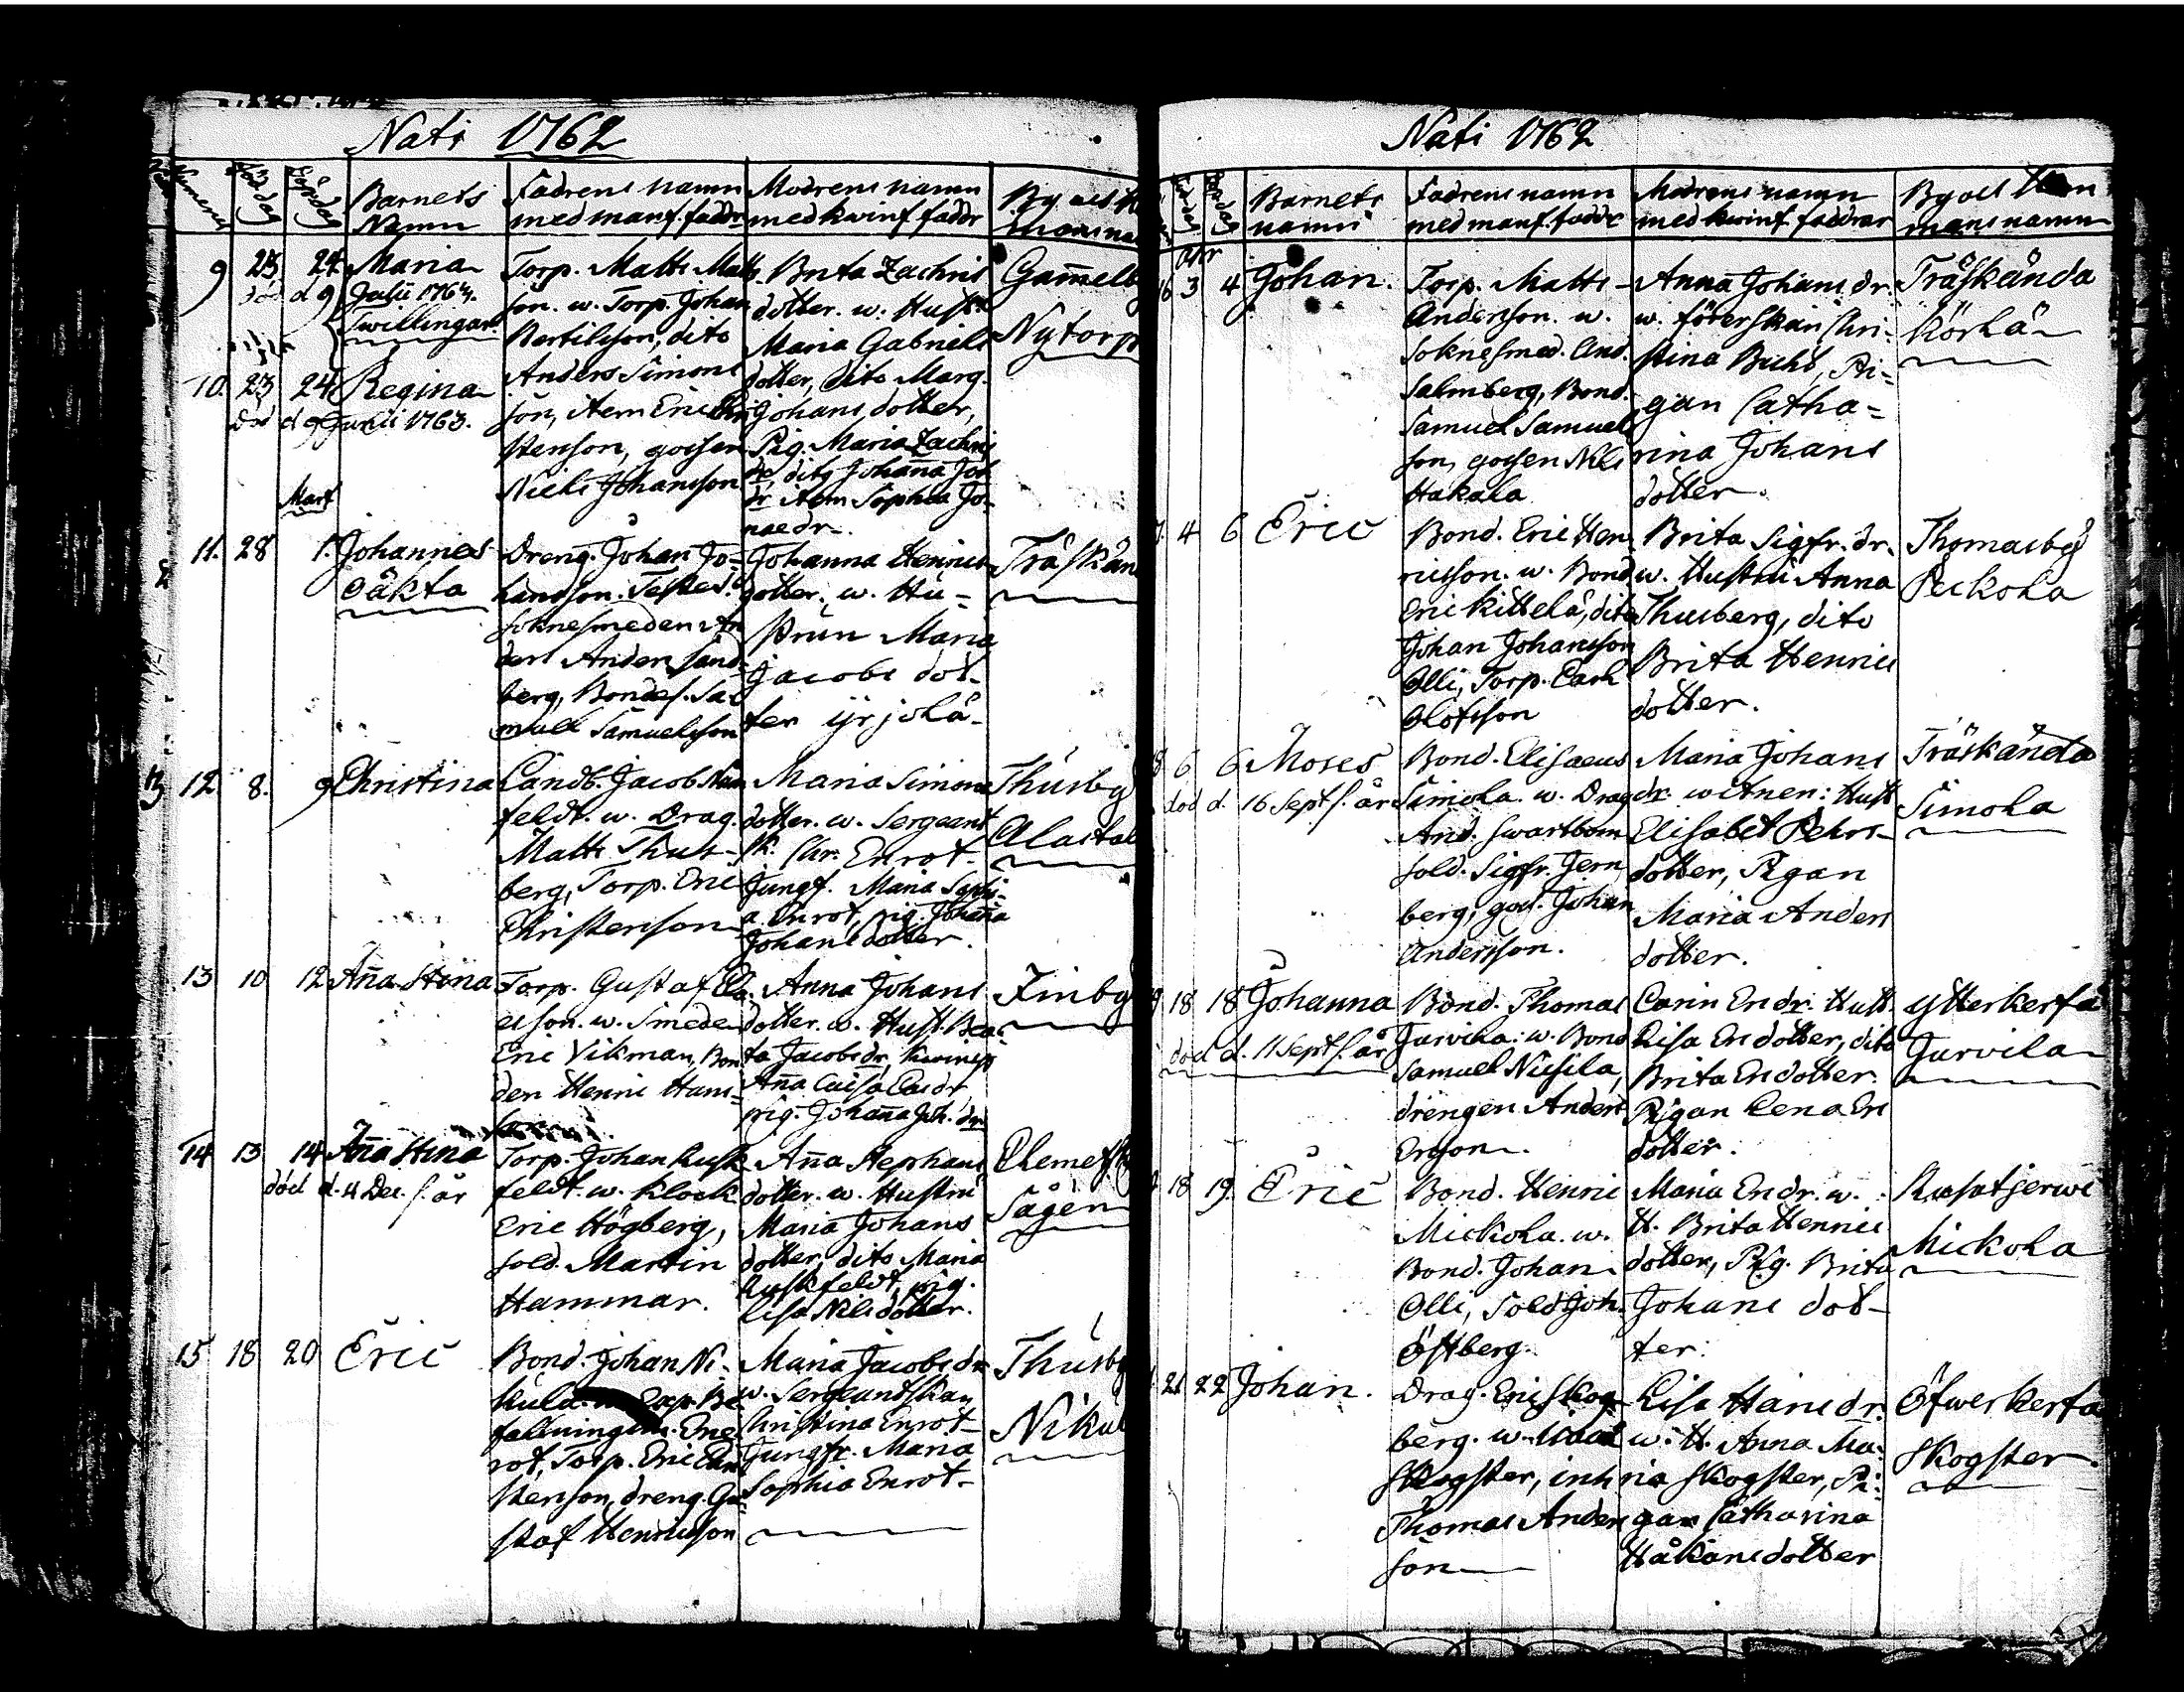 Nati 1762
Numerus
Föd dag
Döpdag
Barnets
Namn
Fadrens namn
med manf. faddr
Modrens namn
med kvinf. faddr
9 23 24 Maria
död d 9 Julii 1763.
Twillingar
Torp. Matts Matts
son. w. Torp. Johan
Bertilsson, dito
Anders Simons
son, item Eric Chri
stenson, gossen
Niels Johansson
Brita Zachris
dotter. w. Hust.
Maria Gabriels
dotter, dito Marg.
Johans dotter,
Pig. Maria Zachris
dr, dito Johanna Joh
dr item Sophia Jo-
nae dr.
Gammelb
Nytorp
10. 23 24 Regina
död d 9 Junii 1763.
Mart
11. 28 1. Johannes
oäkta
Dreng. Johan Jo-
hansson. Testes.
soknesmeden An
ders Anders Sand-
berg, Bondes. Sa
muel Samuelsson
Johanna Henrics
dotter. w. Hu-
strun Maria
Jacobs dot-
ter yrjolä
Träskän
12 8. 9 Christina
Landb. Jacob
feldt. w. Drag.
Matts Thus-
berg, Torp. Eric
Christenson
Maria Simons
dotter. w. Sergeant
sk. Chr. Enrot
Jungf. Maria Sophi-
a Enrot, pig. Johanna
Johans dotter.
Thusby
Alastal
13 10 12 Anna Stina
Torp. Gustaf
w. Smeden
Eric Vikman, Bon
den Henric Hans-
son
Anna Johans
dotter. w. Hust. Bea-
ta Jacobs dr,
Anna Caisa
pig. Johanna Joh. dr
Finby
14 13 14 Anna Stina
död d. 4 Dec. s. år
Torp. Johan Rusk
feldt. w. Klock
Eric Högberg,
sold. Martin
Hammar.
Anna Stephans
dotter. w. Hustru
Maria Johans
dotter, dito Maria
Ruskfeldt, pig.
Lisa Nils dotter.
Sågen
15 18 20 Eric
Bond. Johan Ni-
kula.
fallningsm. Ene
rot, Torp. Eric Chri
stenson, dreng. Gu
staf Henricsson
Maria Jacobs dr
w. Sergeantskan
Christina Enrot
Jungfr. Maria
Sophia Enrot
Thusby
Nikul
Nati 1762
Barnets
namn
Fadrens namn
med manf. faddr
Modrens namn
med kwinf. faddrar
Byoch Hem
mans namn
Apr
16 3 4 Johan.
Torp. Matts
Andersson. w.
soknesmed. And.
Salmberg, Bond.
Samuel Samuels
son, gossen Nils
Hakala
Anna Johans dr.
w. förerskan Chri-
stina Buchs, Pi-
gan Catha-
rina Johans
dotter.
Träskända
Körkä
4 6 Eric
Bond. Eric Hen
ricsson. w. Bond
Eric Kittelä, dito
Johan Johansson
Olli, Torp. Carl
Olofsson
Brita Sigfr. dr.
w. Hustru Anna
Thusberg, dito
Brita Henrics
dotter.
Thomasby
Peckola
6 6 Moses
död d. 16 Sept s. år
Bond. Elisaeus
Simola. w. Drag
And. Swartbom
sold. Sigfr. Jern
berg, goss. Johan
Andersson.
Maria Johans
dr. witnen: Hust
Elisabet Pehrs
dotter, Pigan
Maria Anders
dotter.
Träskända
Simola
18 18 Johanna
död d. 11 Sept s. år
Bond. Thomas
Jurvila: w. Bond
Samuel Nicsila,
drengen Anders
Ersson.
Carin Ers dr. Hust
Lisa Ers dotter, dito
Brita Ers dotter.
Pigan Lena Ers
dotter.
Ytterkersä
Jurvila
18 19. Eric
Bond. Henric
Mickola. w.
Bond. Johan
Olli, Sold Joh.
Östberg.
Maria Ers dr. w.
H. Brita Henrics
dotter, Pig. Brita
Johans dot-
ter.
Rusutjerwi
Mickola
21 22 Johan.
Drag. Eric Skog
berg. w.
Skogster, inh
Thomas Anders
son
Lisa Hans dr.
w. H. Anna Ma-
ria Skogster, Pi-
gan Catharina
Håkans dotter
Öfwerkersa
Skogster.